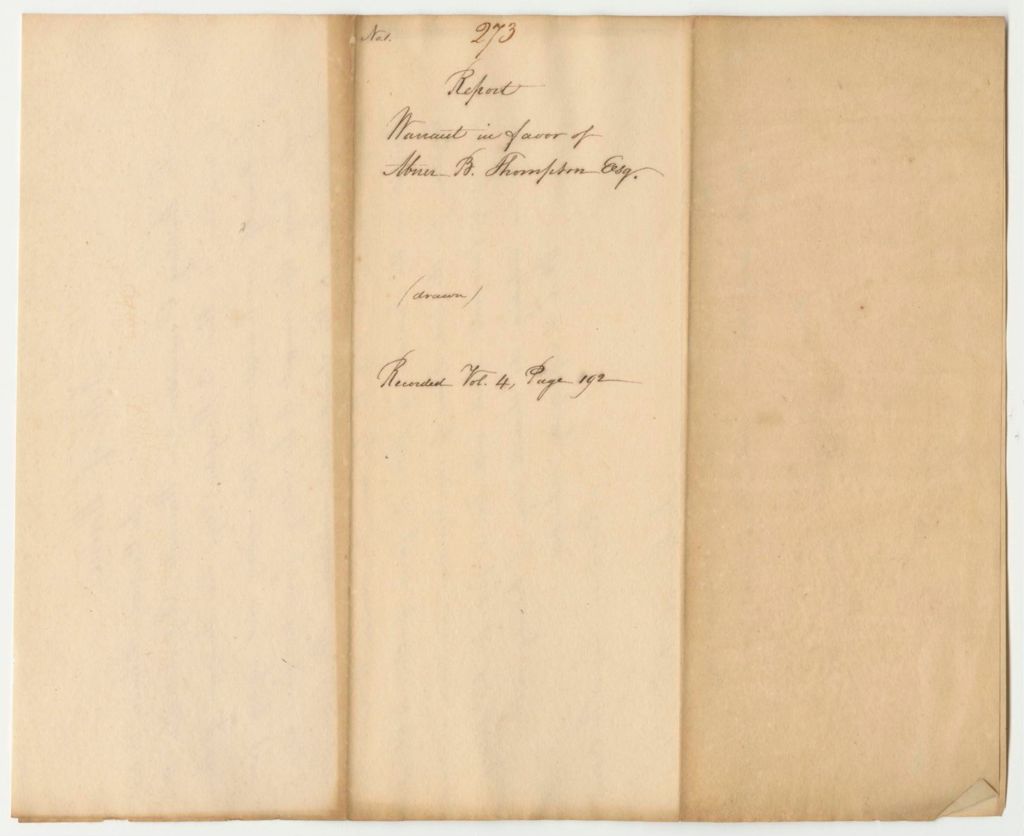 No 1. 273
Report
Warrant in favor of
Abner B. Thompson Esq.
(drawn)
Recorded Vol. 4, Page 192